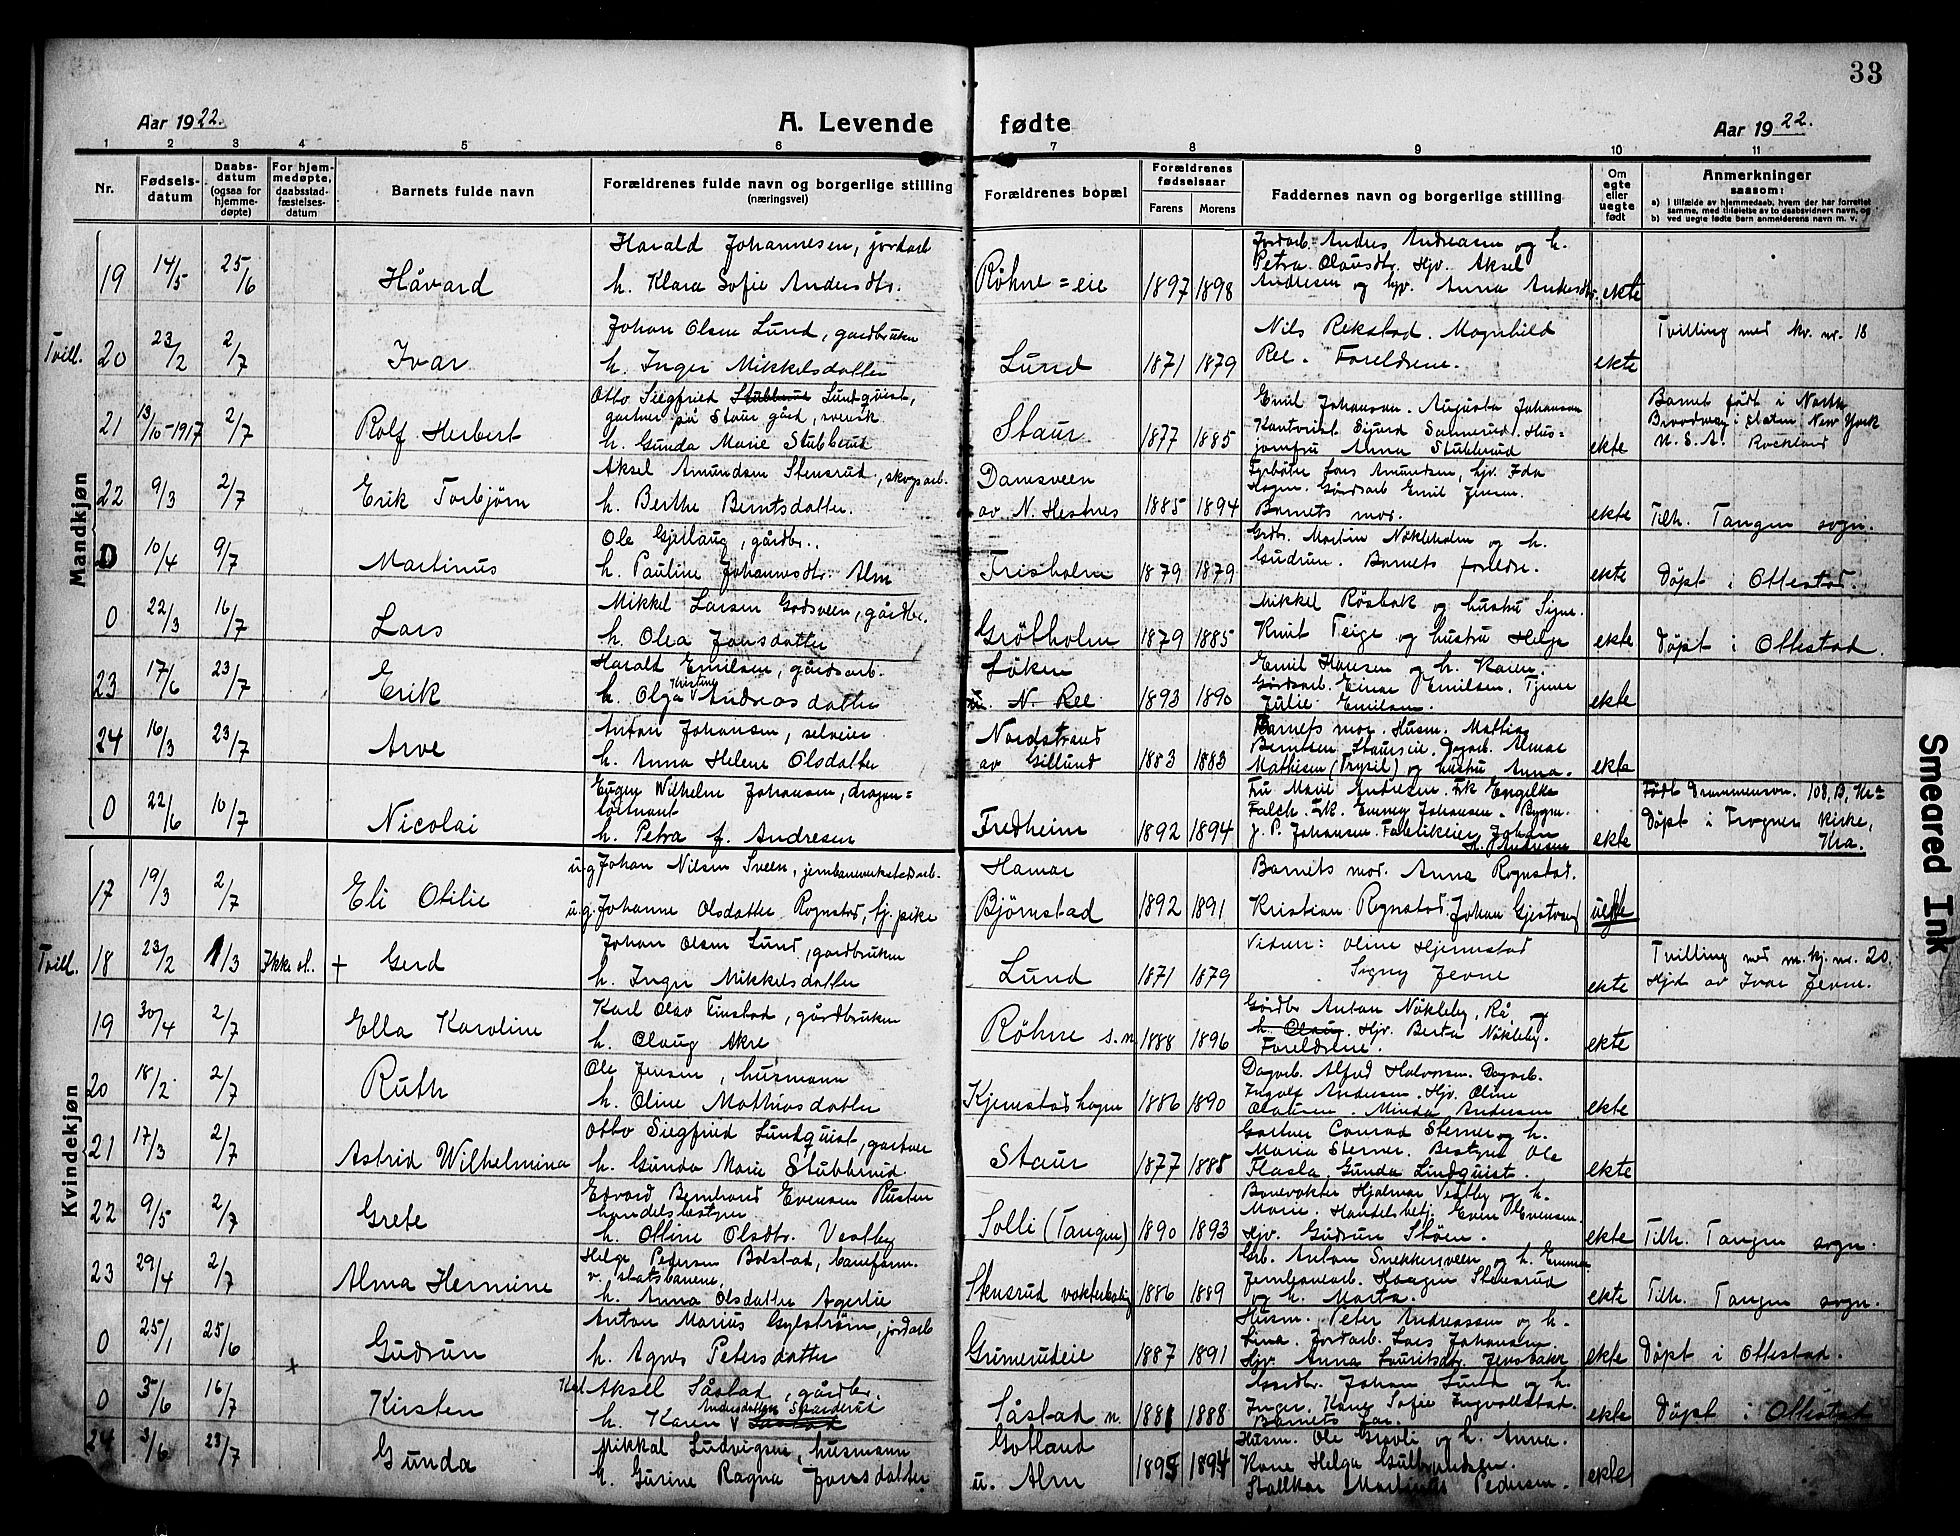 33
Aar 1922.
A. Levende fødte
Aar 1922.
1 2 3 4 5 6 7 8 9 10 11
Nr.
Fødsels-
datum
Daabs-
datum
(ogsaa for
hjemme-
døpte)
For hjem-
medøpte,
daabsstad-
fæstelses-
datum
Barnets fulde navn
Forældrenes fulde navn og borgerlige stilling
(næringsvei)
Forældrenes bopæl
Forældrenes
fødselsaar
Farens Morens
Faddernes navn og borgerlige stilling
Om
egte
eller
uegte
født
Anmerkninger
saasom:
a) I tilfælde av hjemmedaab, hvem der har forrettet
samme, med tilføielse av to daabsvidners navn, og
b) ved uegte fødte barn anmelderens navn m. v.
Mandkjøn
19 14/5 25/6 Håvard
Harald Johannesen, jordarb.
h. Klara Sofie Andersdtr.
Røhne=eie 1897 1898
Jordarb. Andres Andreasen og h.
Petra Olausdtr. Hjv. Aksel
Andresen og hjv. Anna Andersdtr.
ekte
Tvill. 20 23/2 2/7 Ivar
Johan Olsen Lund, gardbruker
h. Inger Mikkelsdatter
Lund 1871 1879
Nils Rekstad. Magnhild
Ree. Foreldrene.
ekte
Tvilling med kv. nr. 18
21 13/10-1917 2/7 Rolf Herbert
Otto Siegfried Stubberud Lundquist,
gartner på Staur gård, svensk
h. Gunda Marie Stubberud
Staur 1877 1885
Emil Johansen. Augusta Johansen
Kontorist Sigurd Sannerud. Hus=
jomfru Anna Stubberud
ekte
Barnet født i North
Broadway, New York
U. S. A. Rockland
22 9/3 2/7 Erik Torbjørn
Aksel Amundsen Stensrud, skogsarb.
h. Berthe Berntsdatter.
Damsveen
av N. Hestnes 1885 1894
Fyrbøter Lars Amundsen, hjv. Ida
Hagen. Gårdsarb. Emil Jensen.
Barnets mor.
ekte
Tilh. Tangen sogn.
0 10/4 9/7 Martinus
Ole Gjetlaug, gårdbr.
h. Pauline Johannesdtr. Alm
Frisholm 1879 1879
Grdbr. Martin Nøkleholm og h.
Gudrun. Barnets foreldre.
ekte
Døpt i Ottestad.
0 22/3 16/7 Lars
Mikkel Larsen Godsveen, gårdbr.
h. Olea Jonsdatter
Grøtholm 1879 1885
Mikkel Røsbak og hustru Signe.
Knut Teige og hustru Helga
ekte
Døpt i Ottestad.
23 17/6 23/7 Erik
Harald Emilsen, gårdsarb.
h. Olga Kristine Andreasdatter
Løken
u. N. Ree 1893 1890
Emil Hansen og h. Karen.
Gårdsarb. Einar Emilsen. Tjener
Julie Emilsen.
ekte
24 16/3 23/7 Arve
Anton Johansen, selveier
h. Anna Helene Olsdatter
Nordstrand
av Gillund 1883 1883
Barnets mor. Husm. Mathias
Berntsen Staurseie. Dagarb. Almar
Mathisen (Trysil) og hustru Anna.
ekte
0 22/6 10/7 Nicolai
Eugen Wilhelm Johansen, dragon=
løitnant
h. Petra f. Andresen
Fredheim 1892 1894
Fru Marie Andresen. Frk Engelke
Falch. Frk. Emmy Johansen. Bygm.
J. P. Johansen. Fabrikeier Johan
H. Andresen
ekte
Født Drammensvn. 108, B, Kra
Døpt i Frogner kirke,
Kra.
Kvindekjøn
17 19/3 2/7 Eli Otilie
u.g. Johan Nilsen Sveen, jernbaneverkstadarb.
u.g. Johanne Olsdatter Rognstad, hj. pike
Hamar
Bjørnstad 1892 1891
Barnets mor. Anna Rognstad.
Kristian Rognstad. Johan Gjestvang
uekte
Tvill. 18 23/2 1/3 Ikke st. + Gerd
Johan Olsen Lund, gardbruker
h. Inger Mikkelsdatter
Lund 1871 1879
Vidner: Oline Hjemstad
Signy Jevne
ekte
Tvilling med m.kj. nr. 20.
Hjd av Ivar Jevne.
19 30/4 2/7 Ella Karoline
Karl Olav Finstad, gårdbruker
h. Olaug Akre
Røhne s. m 1888 1896
Gårdbr Anton Nøkleby, Rå og
h. Olaug. Hjv. Berta Nøkleby.
Foreldrene.
ekte
20 18/2 2/7 Ruth
Ole Jensen, husmann
h. Oline Mathiasdatter
Kjemstadhagen 1886 1890
Dagarb. Alfred Halvorsen. Dagarb.
Ingolf Andersen. Hjv. Oline
Olausen. Minda Andersen
ekte
21 17/3 2/7 Astrid Wilhelmina
Otto Siegfried Lundquist, gartner
h. Gunda Marie Stubberud
Staur 1877 1885
Gartner Conrad Sterner og h.
Maria Sterner. Bestyrer Ole
Flasla. Gunda Lindquist.
ekte
22 9/5 2/7 Grete
Edvard Bernhard Evensen Rusten
handelsbestyrer
h. Otline Olsdtr. Vestby
Solli (Tangen) 1890 1893
Banevokter Hjalmar Vestby og h.
Marie. Handelsbetj. Even Evensen.
Hjv. Gudrun Støen.
ekte
Tilh. Tangen sogn.
23 29/4 2/7 Alma Hermine
Helge Pedersen Bolstad, baneform.
v. statsbanene,
h. Anna Olsdatter Agerlie
Stensrud vokterbolig 1886 1889
Grb. Anton Snekkersveen og h. Emma
Jernbanearb. Haagen Stensrud
og h. Marta.
ekte
Tilh. Tangen sogn.
0 25/1 25/6 x Gudrun
Anton Marius Gylstrøm, jordarb
h. Agnes Petersdatter
Grimerudeie 1887 1891
Husm. Peter Andreassen og h.
Lina. Jordarb. Lars Johansen
Hjv. Anna Lauritsdtr. Jensbakk
ekte
Døpt i Ottestad.
0 3/6 16/7 Kirsten
Aksel Såstad, gårdbr.
h. Karen Andersdatter
Såstad n. 1881 1888
Gårdbr. Johan Lund og h.
Inger. Kone Sofie Ingvoldstad.
Barnets far.
ekte
Døpt i Ottestad
24 3/6 23/7 Gunda
Mikkal Ludvigsen, husmann
h. Gurine Ragna Jonsdatter
Gotland
u. Alm 1895 1894
Husm. Ole Gravli og h. Anna.
Kone Helga Gulbrandsen.
Stallkar Martinus Pedersen.
ekte
Smeared Ink